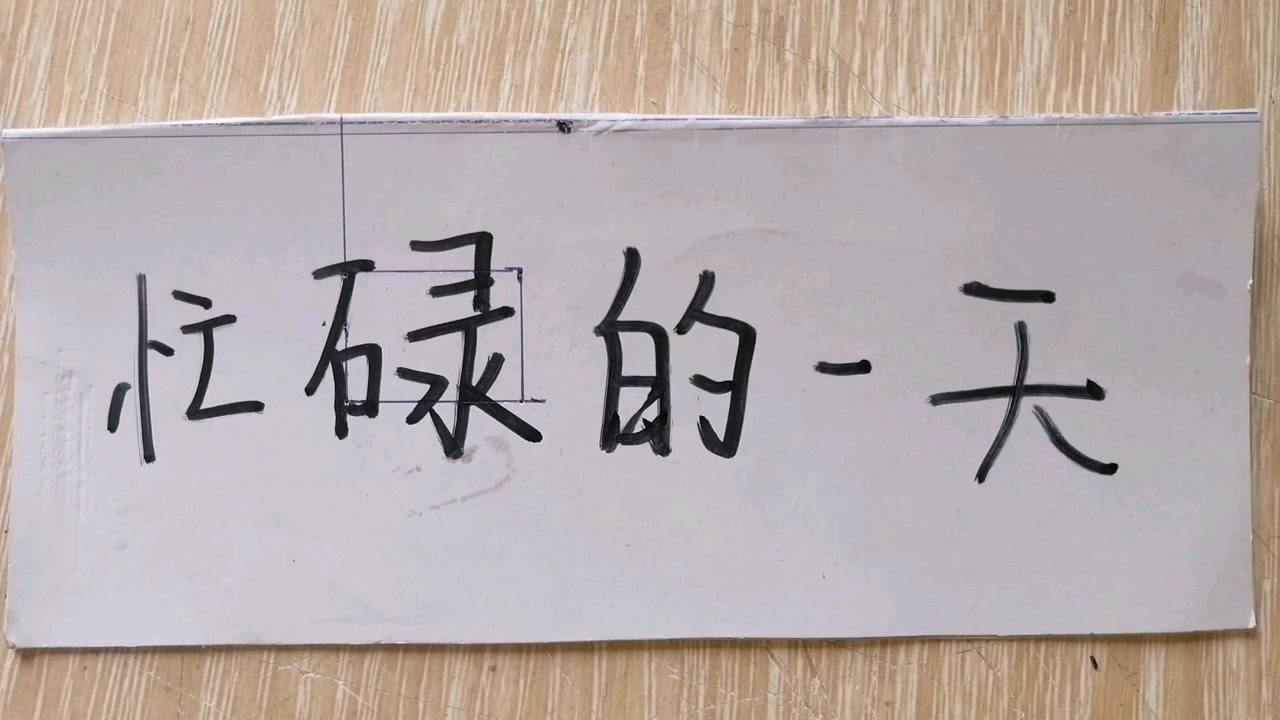 忙碌的一天